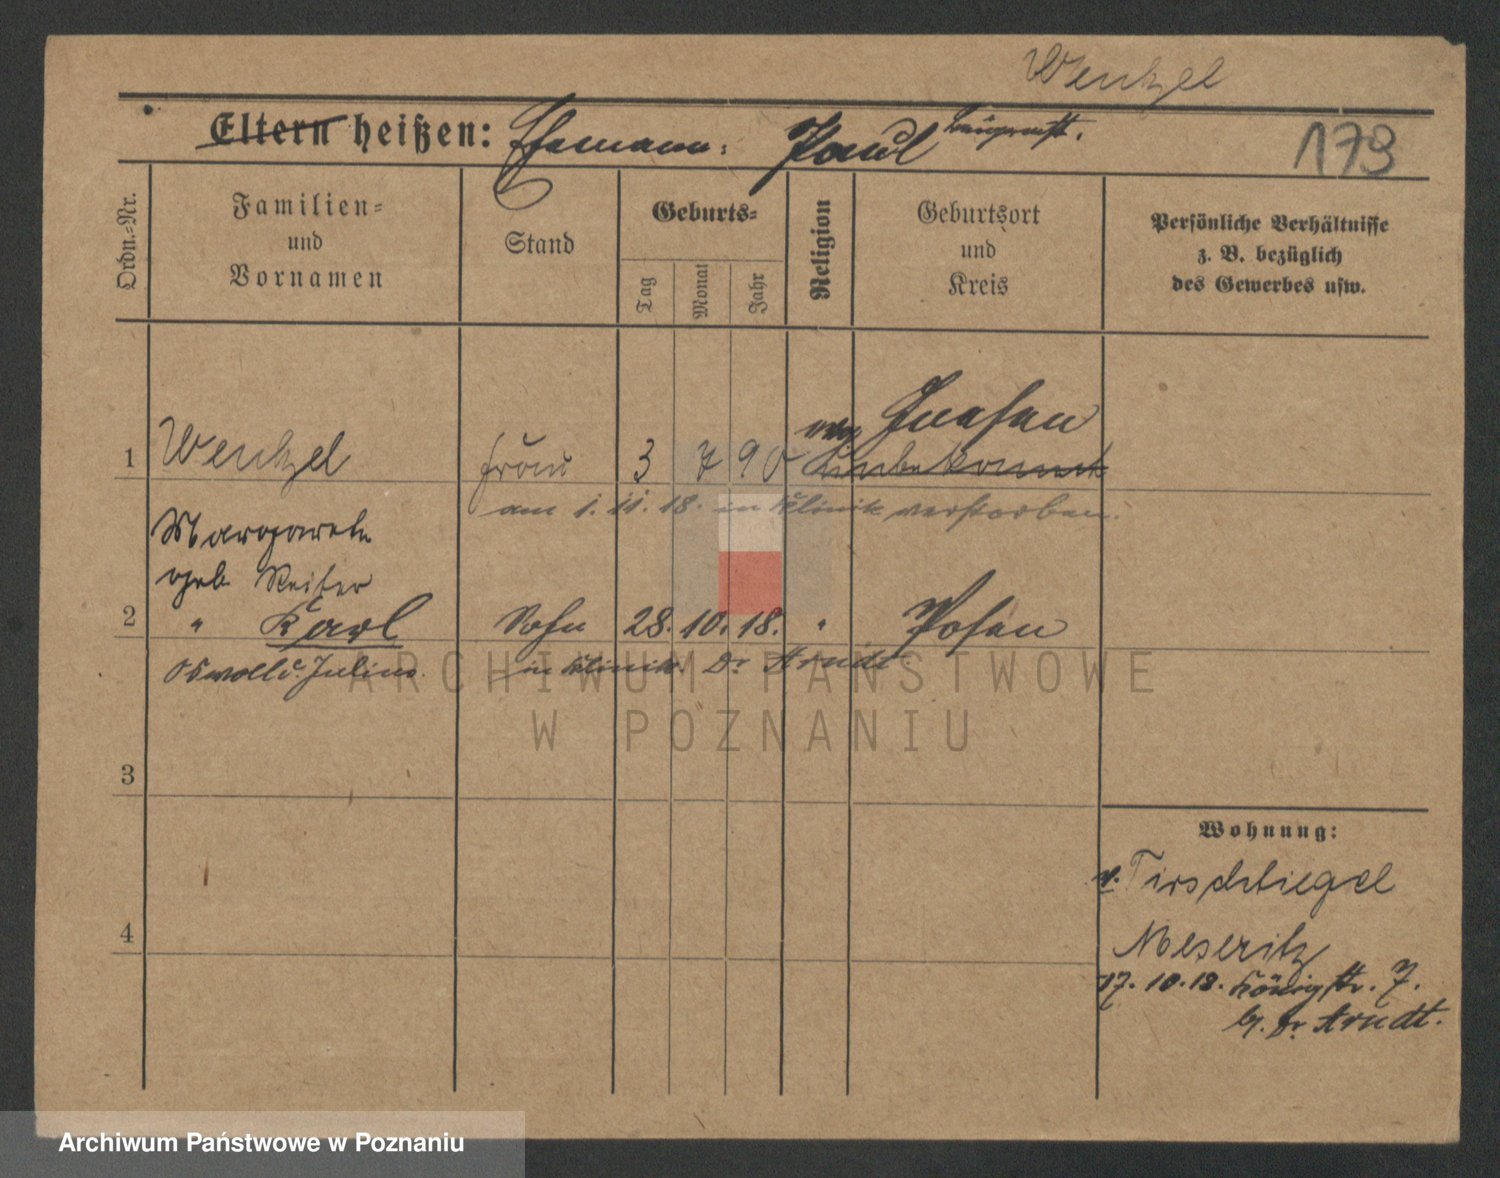 Wentzel
Eltern heißen: Ehemann: Paul
179
Ordn.-Nr.
Familien-
und
Vornamen
Stand
Geburts-
Tag
Monat
Jahr
Religion
Geburtsort
und
Kreis
Persönliche Verhältnisse
z. B. bezüglich
des Gewerbes usw.
1 Wentzel Frau 3 7 90 evg Gnesen
Unbekannt
am 1. 11. 18. in Klinik verstorben.
Margarete
geb. Reiter
2 " Karl Sohn 28. 10. 18. " Posen
Oswald. Julius. in Klinik. Dr Arndt
3
4
Wohnung:
v. Tirschtiegel
Meseritz
17. 10. 18. Königstr. 7.
b. Dr Arndt.
ARCHIWUM PAŃSTWOWE
W POZNANIU
Archiwum Państwowe w Poznaniu